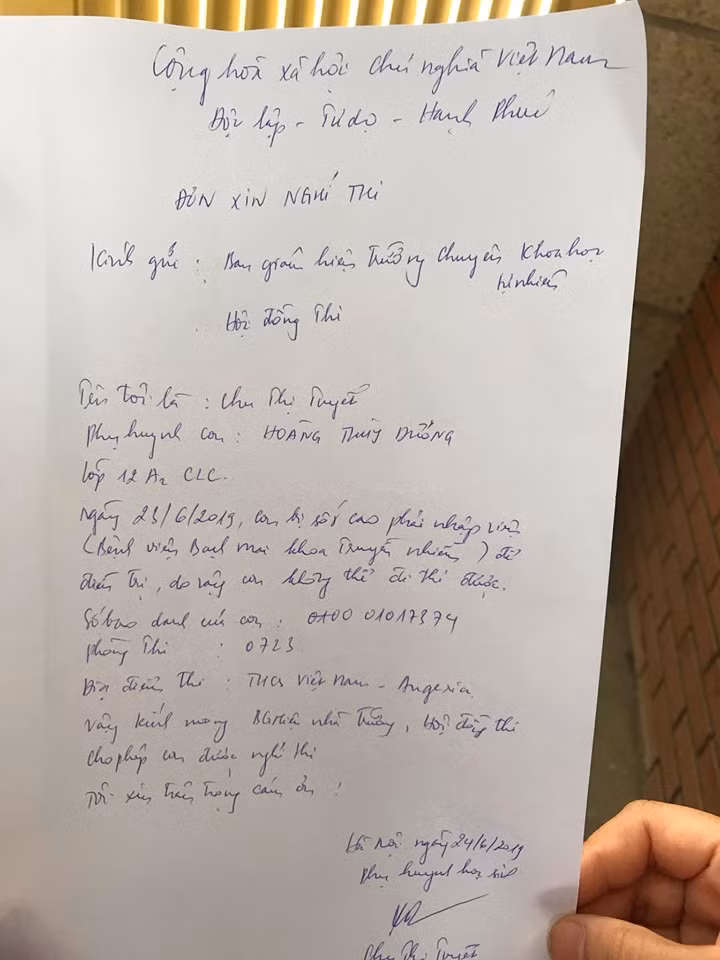 Cộng hoà xã hội chủ nghĩa Việt Nam
Độc lập - Tự do - Hạnh Phúc
ĐƠN XIN NGHỈ THI
Kính gửi : Ban giám hiệu trường chuyên Khoa học
tự nhiên
Hội đồng Thi
Tên tôi là : Chu Thị Tuyết
Phụ huynh con : HOÀNG THUỲ DƯƠNG
Lớp 12 A2 CLC.
Ngày 23/6/2019, con bị sốt cao phải nhập viện
(Bệnh viện Bạch mai khoa Truyền nhiễm) để
điều trị, do vậy con không thể đi thi được.
Số báo danh của con : 01017374
phòng Thi : 0723
Địa điểm thi : THCS Việt Nam - Angeria.
Vậy kính mong BGHiệu nhà trường, Hội đồng thi
cho phép con được nghỉ thi
Tôi xin trân trọng cám ơn !
Hà Nội ngày 24/6/2019
Phụ huynh học sinh
Chu Thị Tuyết